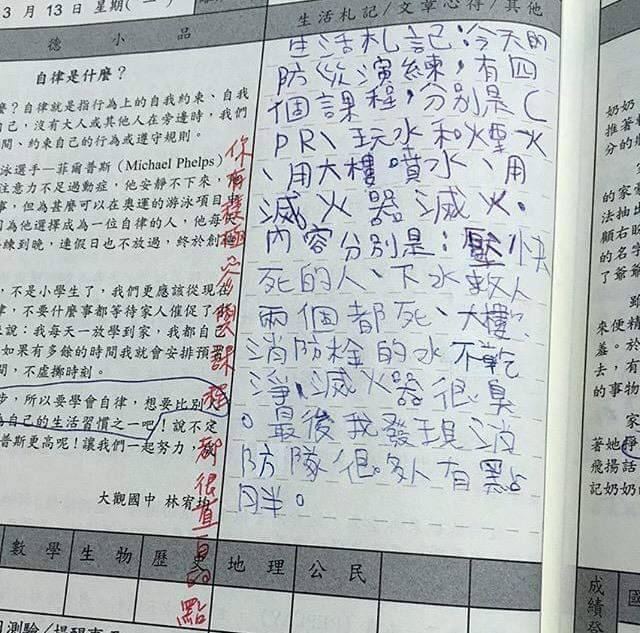 3 月 13 日 星期(一)
生活札記/文章心得/其他
德 小 品
自律是什麼？
麼？自律就是指行為上的自我約束、自我
自己，沒有大人或其他人在旁邊時，我們
間、約束自己的行為或遵守規則。
泳選手—菲爾普斯 (Michael Phelps)
注意力不足過動症，他安靜不下來，
事，但為甚麼可以在奧運的游泳項目
因為他選擇成為一位自律的人，他每
練到晚，連假日也不放過，終於創
，不是小學生了，我們更應該從現在
律，不要什麼事都等待家人催促了
來說：我每天一放學到家，我都自己
如果有多餘的時間我就會安排預
間，不虛擲時刻。
步，所以要學會自律，想要比別
為自己的生活習慣之一吧！說不定
普斯更高呢！讓我們一起努力，
大觀國中 林宥
你有積極參與課程都很直
點
生活札記:今天的
防災演練，有四
個課程，分別是C
PR、玩水和煙火
、用大樓噴水、用
滅火器滅火。
內容分別是：壓快
死的人、下水救人
兩個都死、大樓
消防栓的水不乾
淨、滅火器很臭
。最後我發現消
防隊很多人有點
胖。
數學 生物 歷史 地理 公民
奶奶
推著
分的
的家
法抽出
顧右盼
的名字
了爺
來便
羞。於
去，有
的事物
家
著她
飛揚話
記奶奶
成績
國